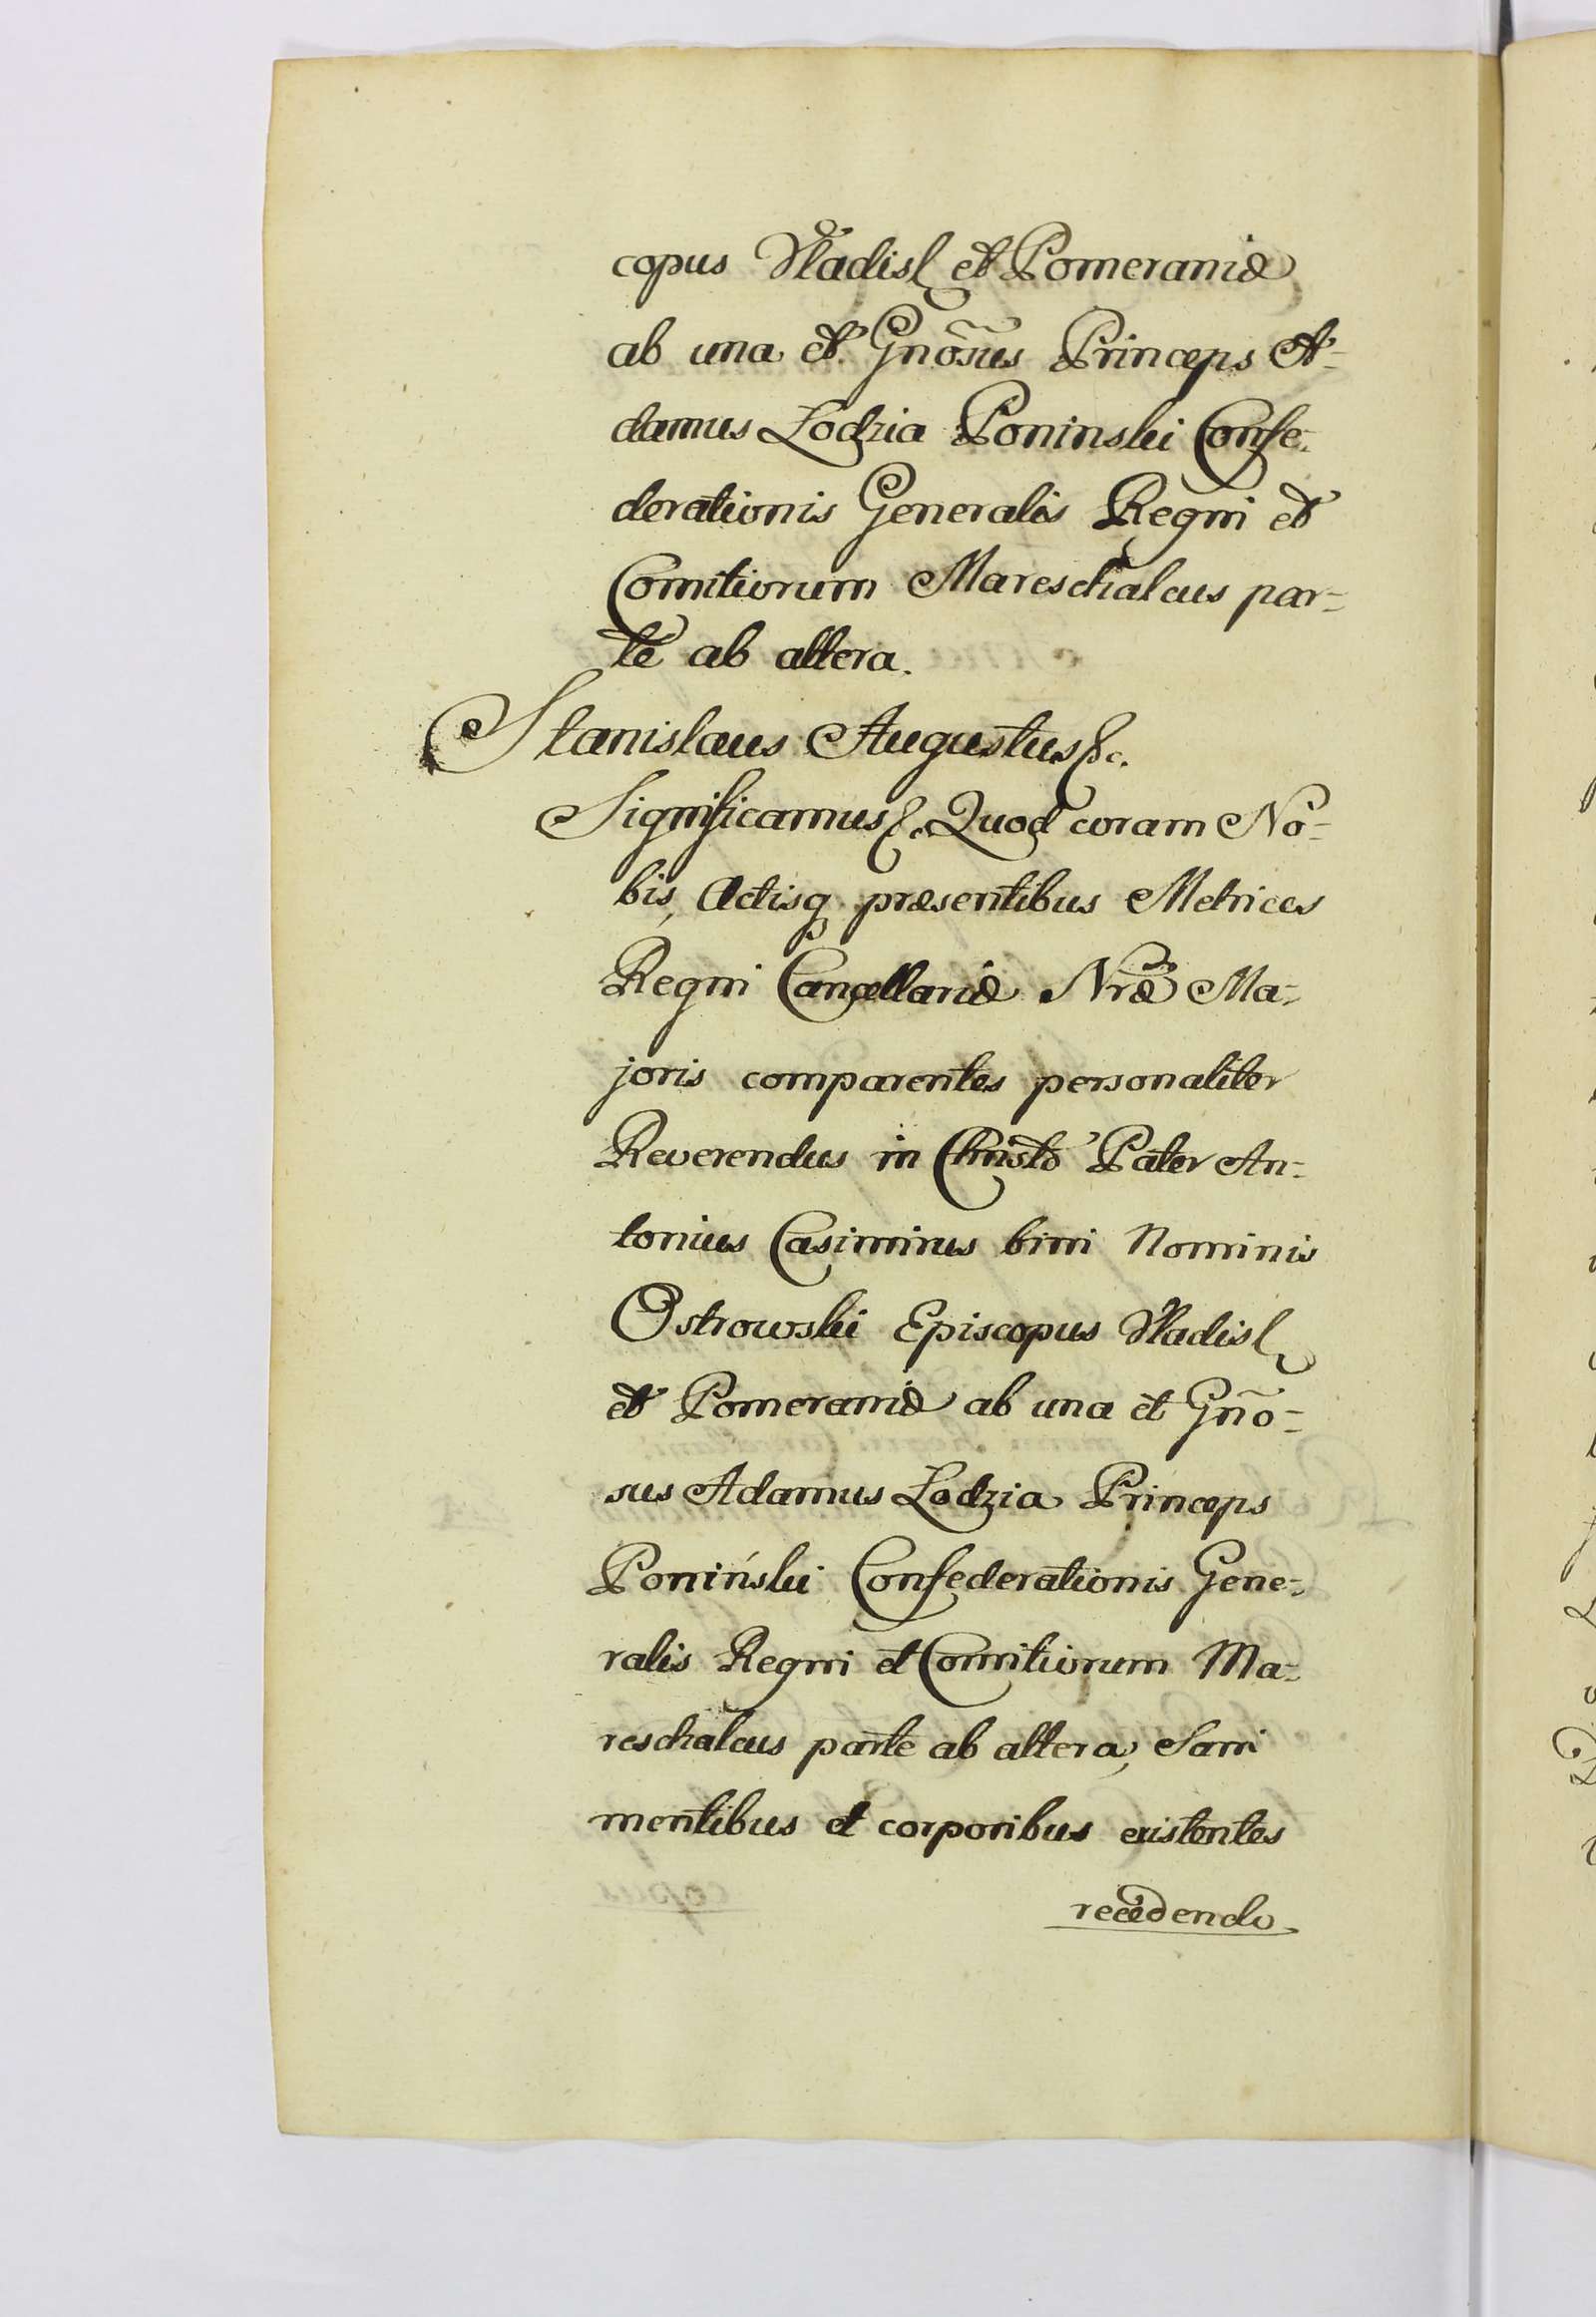 copus Vladisl et Pomeraniæ
ab una et Gnõsus Princeps A-
damus Lodzia Poninski Confe-
derationis Generalis Regni et
Comitiorum Mareschalcus par-
te ab altera.
Stanislaus Augustus &c.
Significamus &. Quod coram No-
bis, Actisq præsentibus Metrices
Regni Cancellariæ Nræ Ma-
joris comparentes personaliter
Reverendus in Christo Pater An-
tonius Casimirus bini Nominis
Ostrowski Episcopus Vladisl
et Pomeraniæ ab una et Gño-
sus Adamus Lodzia Princeps
Poniński Confederationis Gene-
ralis Regni et Comitiorum Ma-
reschalcus parte ab altera, Sani
mentibus et corporibus existentes
recedendo